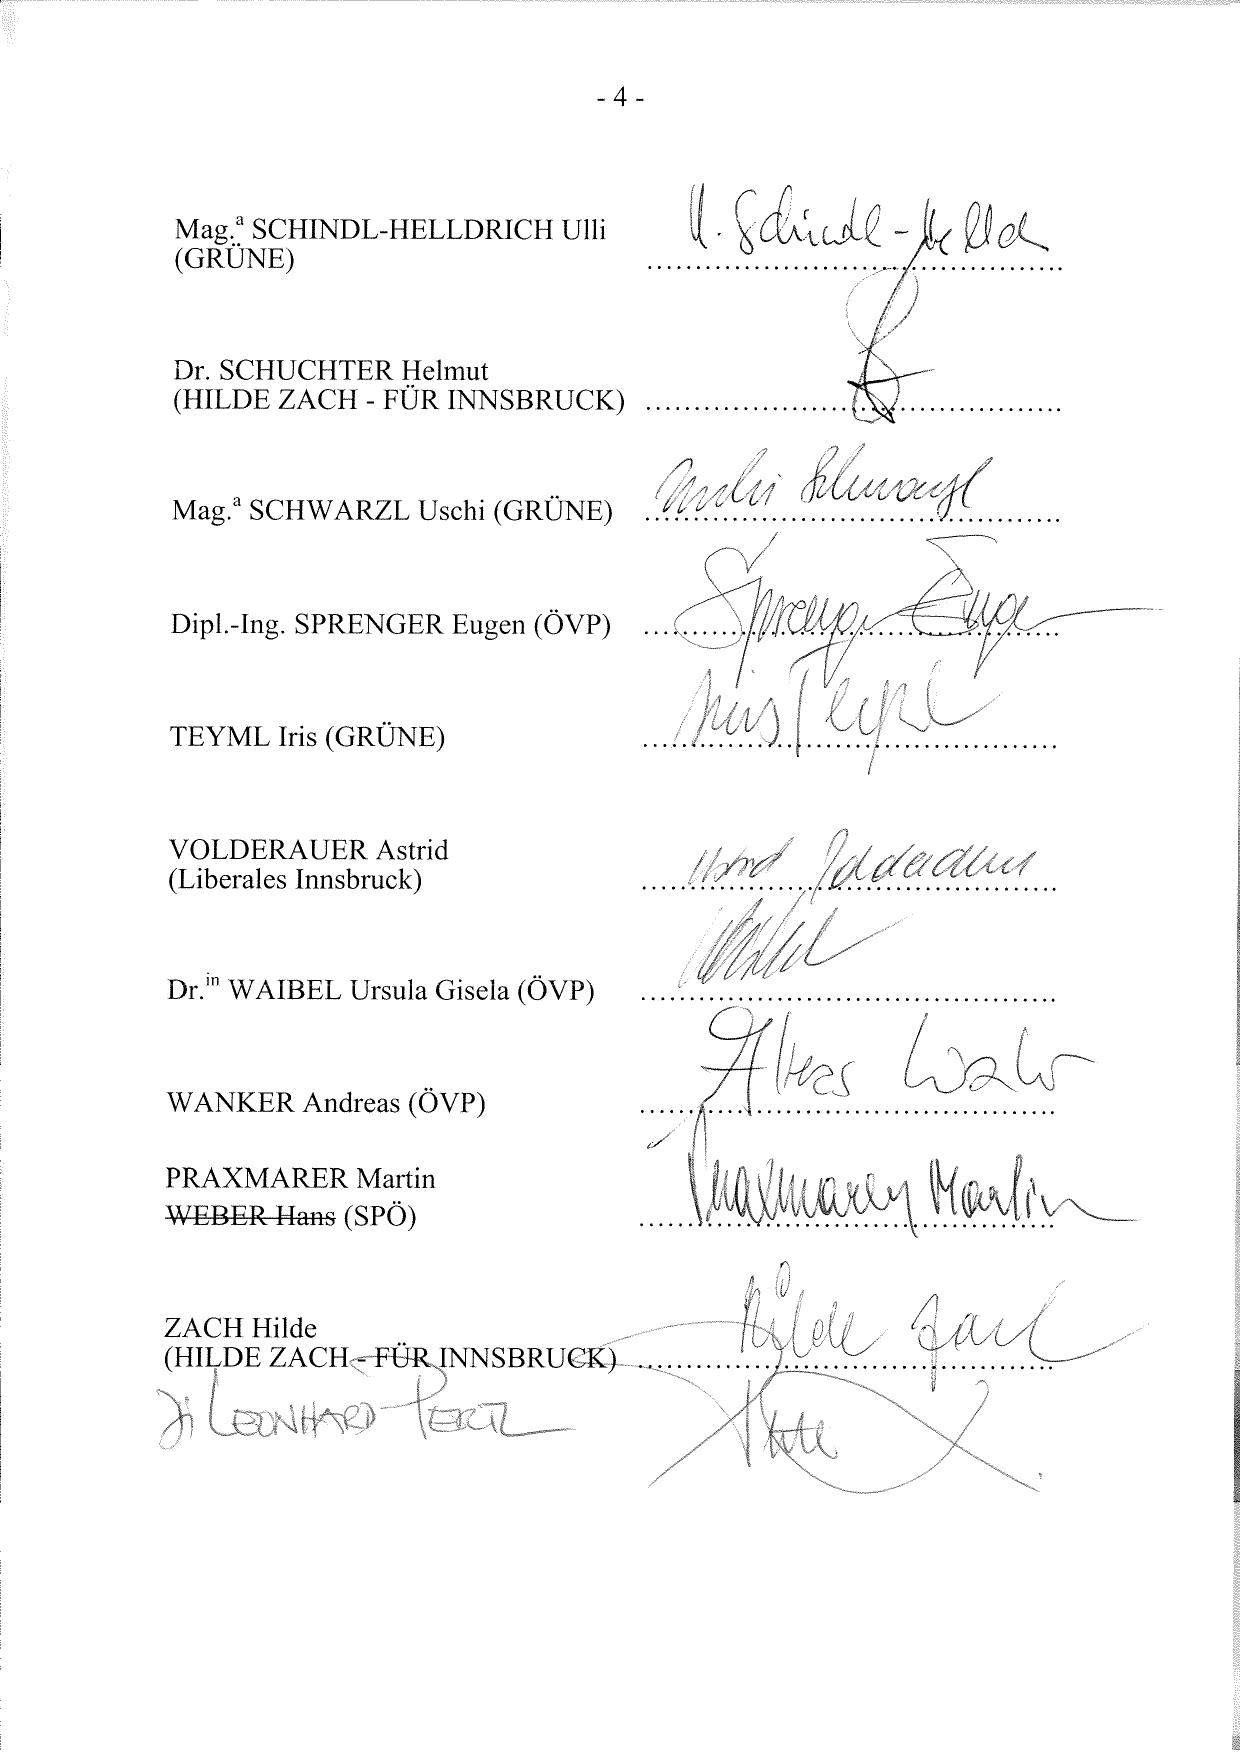 - 4 -
Mag.ª SCHINDL-HELLDRICH Ulli
(GRÜNE)
U. Schindl-Helld
Dr. SCHUCHTER Helmut
(HILDE ZACH - FÜR INNSBRUCK)
Mag.ª SCHWARZL Uschi (GRÜNE)
Uschi Schwarzl
Dipl.-Ing. SPRENGER Eugen (ÖVP)
Sprenger Eugen
TEYML Iris (GRÜNE)
Iris Teyml
VOLDERAUER Astrid
(Liberales Innsbruck)
Astrid Volderauer
Dr.in WAIBEL Ursula Gisela (ÖVP)
Waibel
WANKER Andreas (ÖVP)
PRAXMARER Martin
WEBER Hans (SPÖ)
Praxmarer Martin
ZACH Hilde
(HILDE ZACH - FÜR INNSBRUCK)
Hilde Zach
DI LEONHARD PERTL